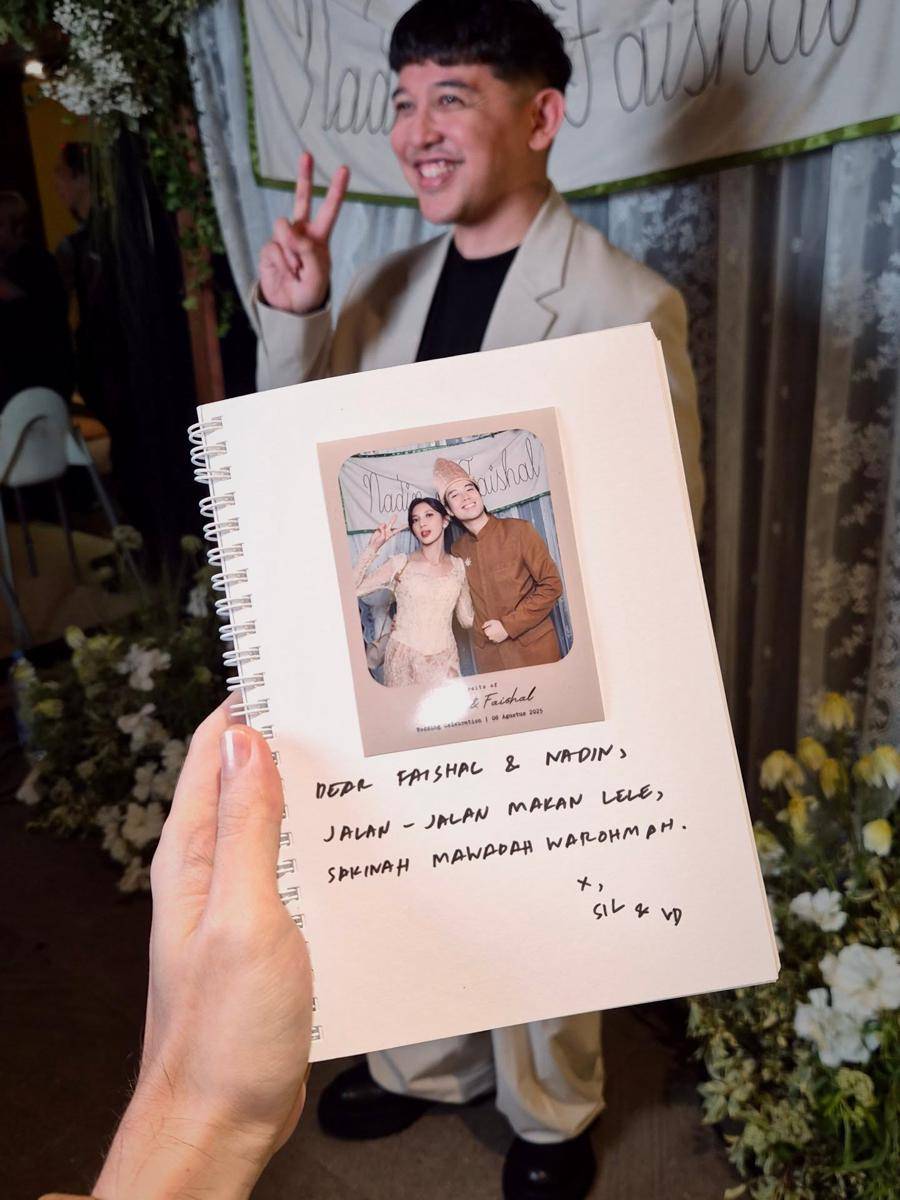 Faishal
Nadin Faishal
& Faishal
Wedding Celebration | 08 Agustus 2025
DEAR FAISHAL & NADIN,
JALAN - JALAN MAKAN LELE,
SAKINAH MAWADAH WAROHMAH.
x,
SIL & VD